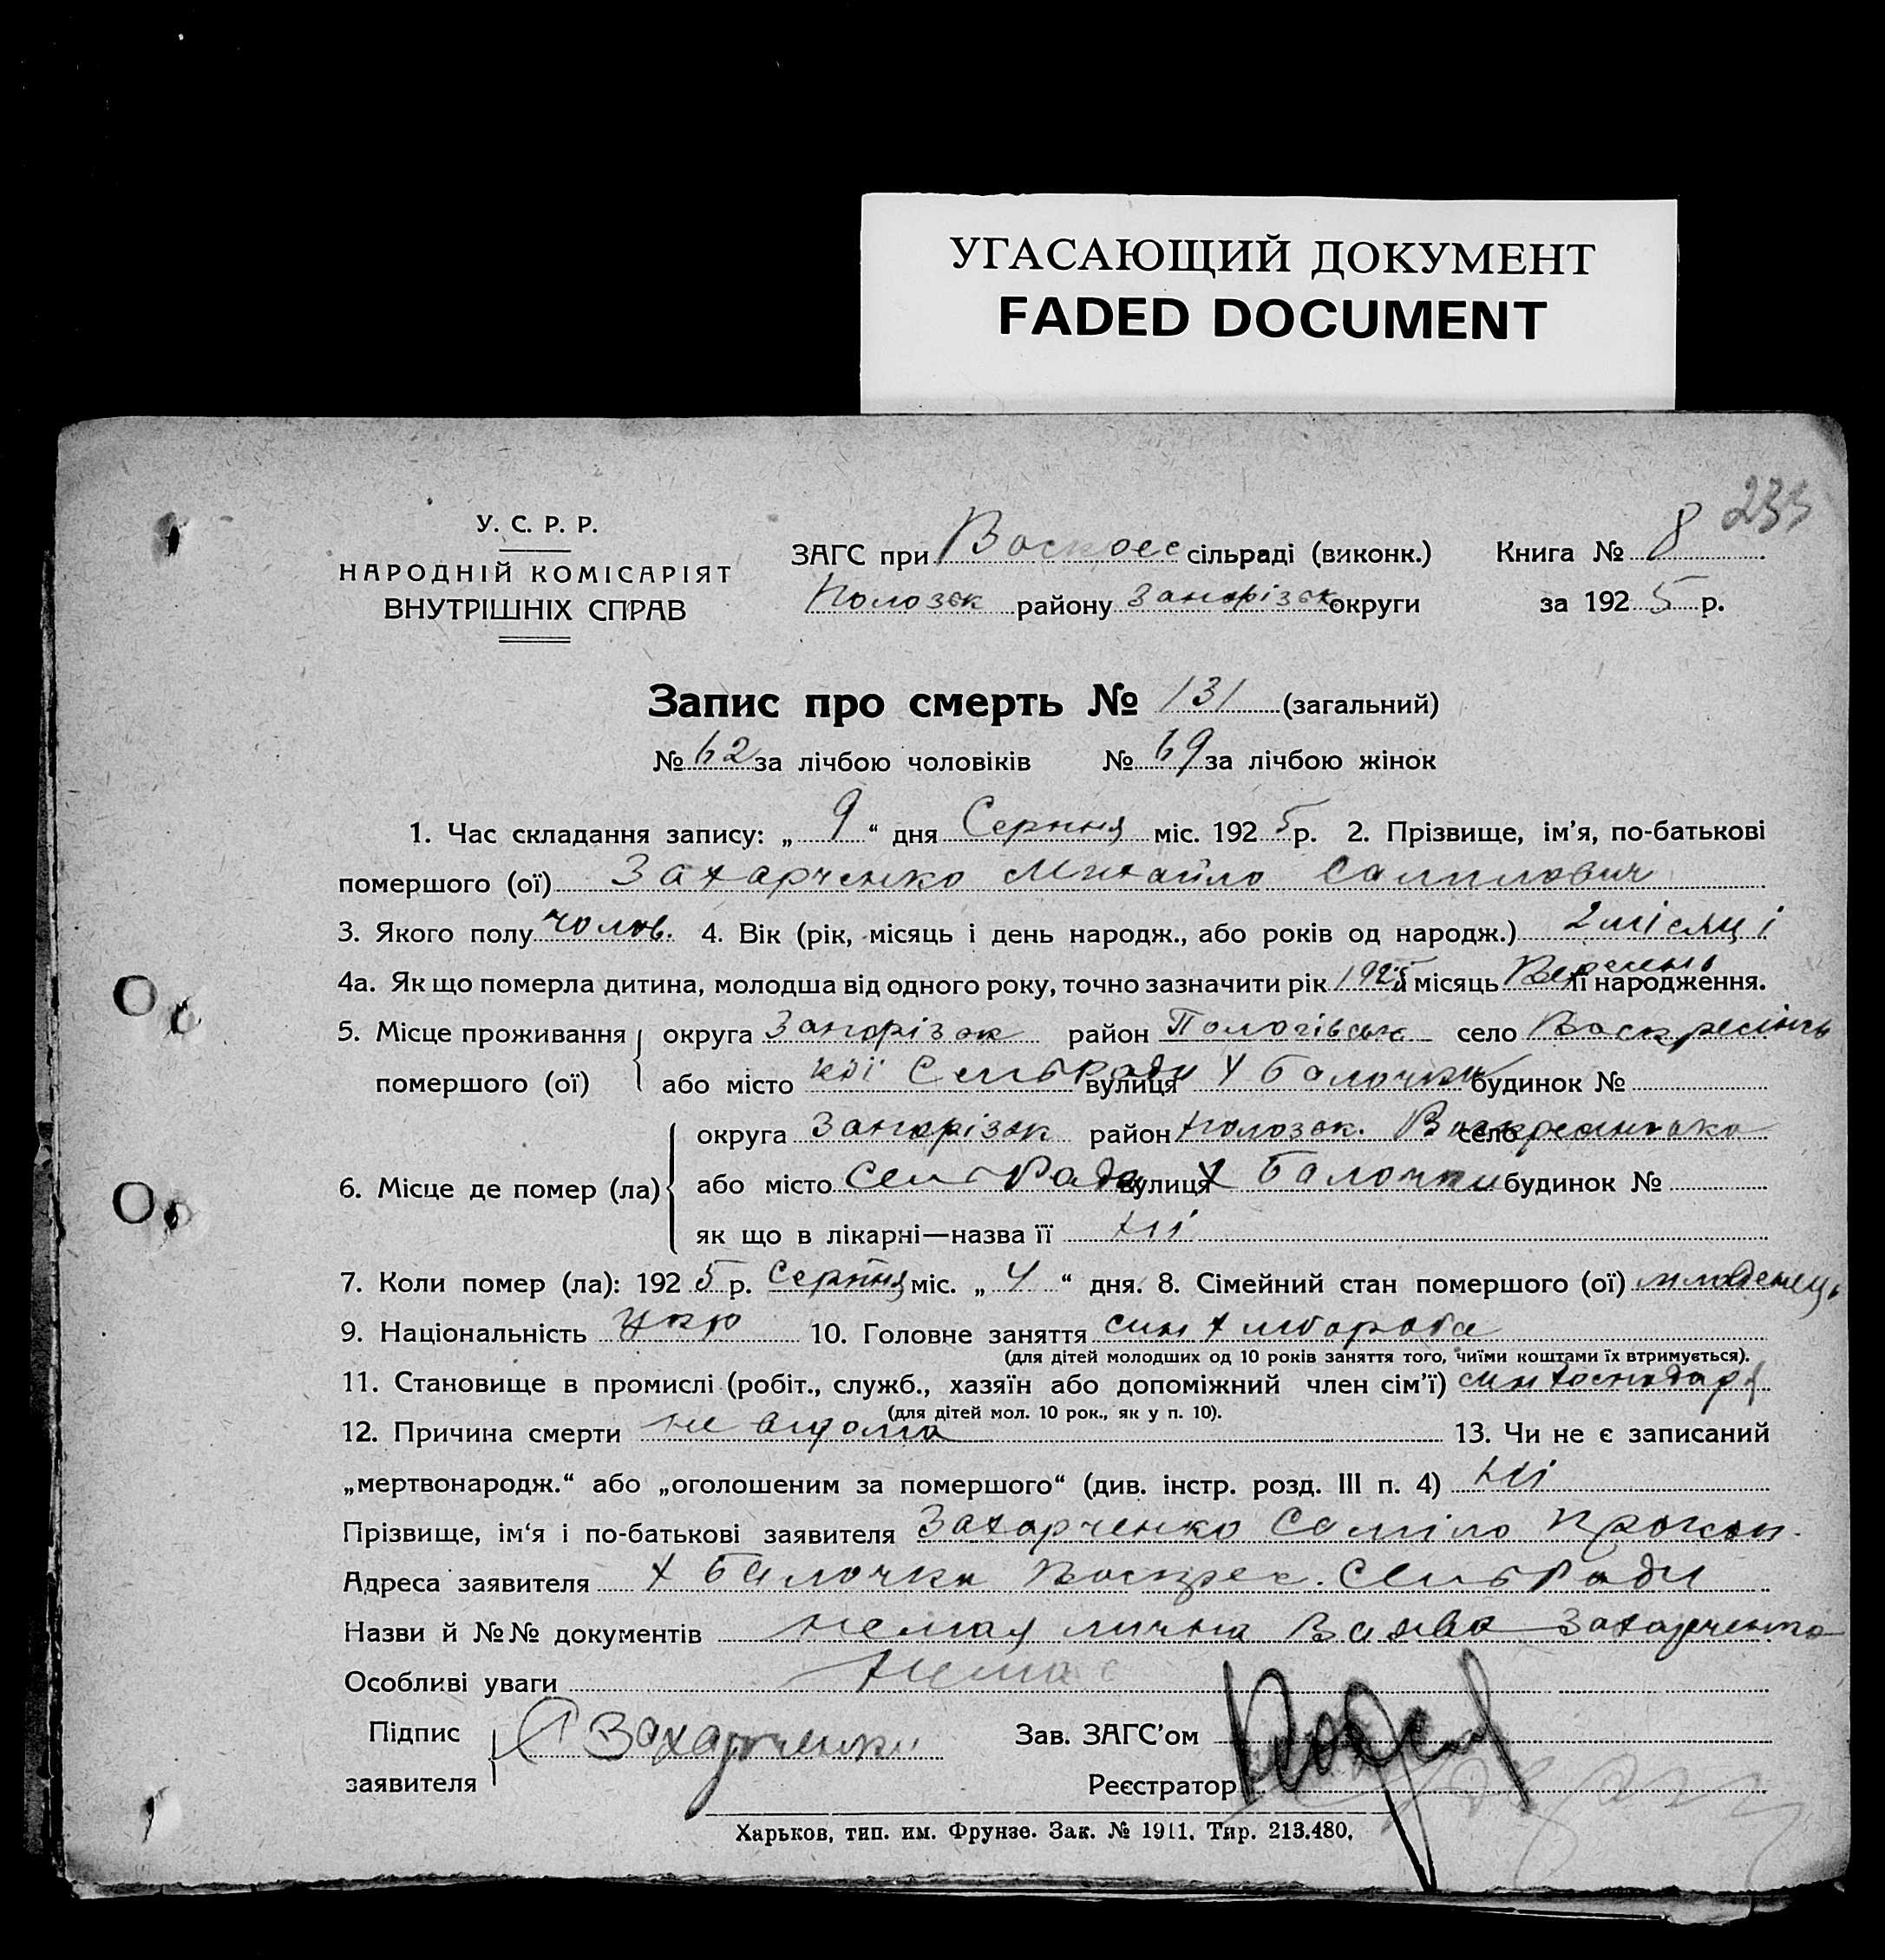 УГАСАЮЩИЙ ДОКУМЕНТ
FADED DOCUMENT
233
У. С. Р. Р.
НАРОДНІЙ КОМІСАРІЯТ
ВНУТРІШНІХ СПРАВ
ЗАГС при Воскрес сільраді (виконк.)
Полозек району Запорізок округи
Книга № 8
за 1925 р.
Запис про смерть № 131 (загальний)
№ 62 за лічбою чоловіків № 69 за лічбою жінок
1. Час складання запису: „ 9 “ дня Серпня міс. 1925 р. 2. Прізвище, ім’я, по-батькові
помершого (ої) Захарченко Михайло Самилович
3. Якого полу чолов. 4. Вік (рік, місяць і день народж., або років од народж.) 2 місяці
4а. Як що померла дитина, молодша від одного року, точно зазначити рік 1925 й місяць її народження.
5. Місце проживання округа Запорізок район Пологівськ село Воскресінсь
помершого (ої) або місто кої СельРади вулиця Х Балочки будинок №
6. Місце де помер (ла) округа Запорізок район Полозок. село Воскресинська
або місто Сель Рада вулиця Х Балочки будинок №
як що в лікарні—назва її ні
7. Коли помер (ла): 1925 р. Серпня міс. „ 4 “ дня. 8. Сімейний стан помершого (ої) младенець
9. Національність Укр 10. Головне заняття син хлібороба
(для дітей молодших од 10 років заняття того, чиїми коштами їх втримується).
11. Становище в промислі (робіт., служб., хазяїн або допоміжний член сім’ї) син господаря
(для дітей мол. 10 рок., як у п. 10).
12. Причина смерти не відома 13. Чи не є записаний
„мертвонародж.“ або „оголошеним за помершого“ (див. інстр. розд. III п. 4) ні
Прізвище, ім‘я і по-батькові заявителя Захарченко Саміло Прокоп.
Адреса заявителя х Балочки Воскрес. СельРади
Назви й №№ документів немая лична Заява Захарченко
Особливі уваги Немає
Підпис заявителя Захарченко
Зав. ЗАГС’ом
Реєстратор
Харьков, тип. им. Фрунзе. Зак. № 1911. Тир. 213.480.